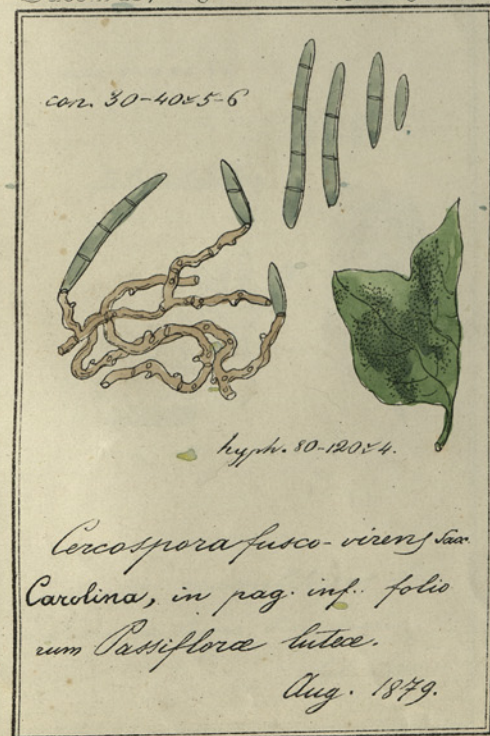 con. 30-40 ≈ 5-6
hyph. 80-120 ≈ 4.
Cercospora fusco-virens Sacc.
Carolina, in pag. inf. folio
rum Passifloræ luteæ.
Aug. 1879.